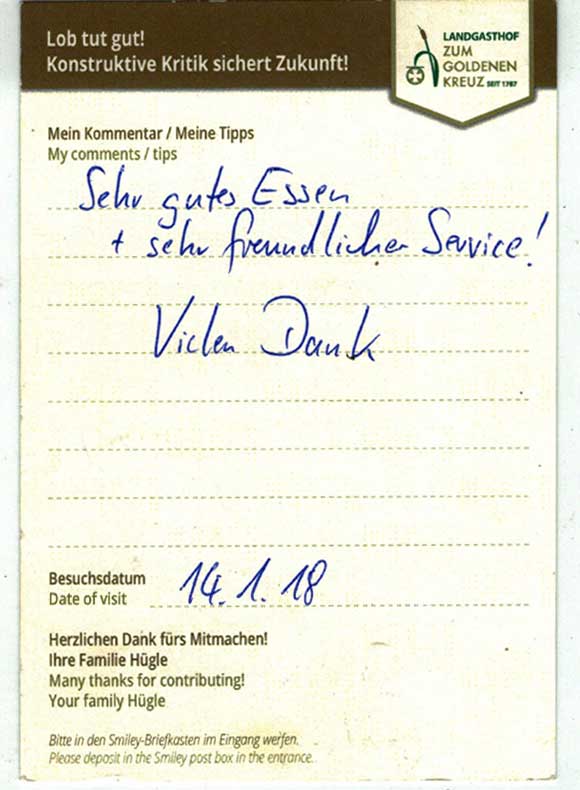 Lob tut gut!
Konstruktive Kritik sichert Zukunft!
LANDGASTHOF
ZUM
GOLDENEN
KREUZ SEIT 1767
Mein Kommentar / Meine Tipps
My comments / tips
Sehr gutes Essen
+ sehr freundlicher Service!
Vielen Dank
Besuchsdatum
Date of visit
14.1.18
Herzlichen Dank fürs Mitmachen!
Ihre Familie Hügle
Many thanks for contributing!
Your family Hügle
Bitte in den Smiley-Briefkasten im Eingang werfen.
Please deposit in the Smiley post box in the entrance.